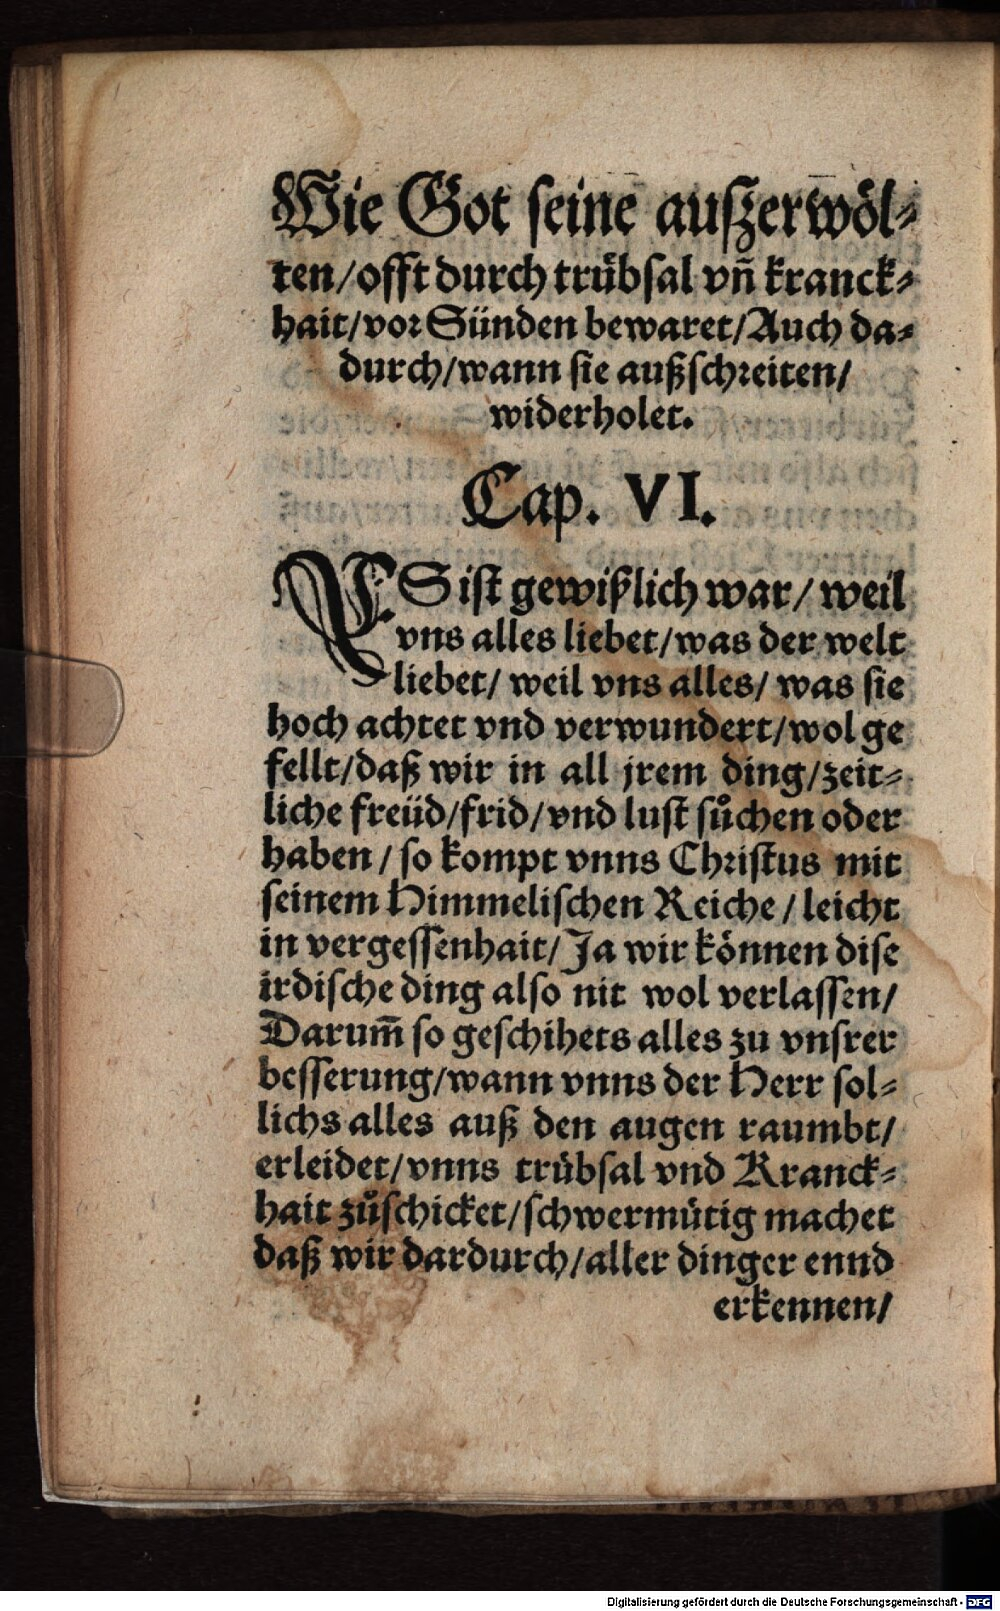 Wie Got seine auszerwöl⸗
ten/offt durch trübsal vn̄ kranck⸗
hait/vor Sünden bewaret/Auch da⸗
durch/wann sie außschreiten/
widerholet.
Cap. VI.
ES ist gewißlich war/ weil
vns alles liebet/was der welt
liebet/ weil vns alles/ was sie
hoch achtet vnd verwundert/wol ge
fellt/daß wir in all jrem ding/zeit⸗
liche freüd/frid/vnd lust sůchen oder
haben/ so kompt vnns Christus mit
seinem Himmelischen Reiche/ leicht
in vergessenhait/ Ja wir können dise
irdische ding also nit wol verlassen/
Darum̄ so geschihets alles zu vnsrer
besserung/wann vnns der Herr sol⸗
lichs alles auß den augen raumbt/
erleidet/vnns trübsal vnd Kranck⸗
hait zůschicket/schwermütig machet
daß wir dardurch/aller dinger ennd
erkennen/
Digitalisierung gefördert durch die Deutsche Forschungsgemeinschaft - DFG